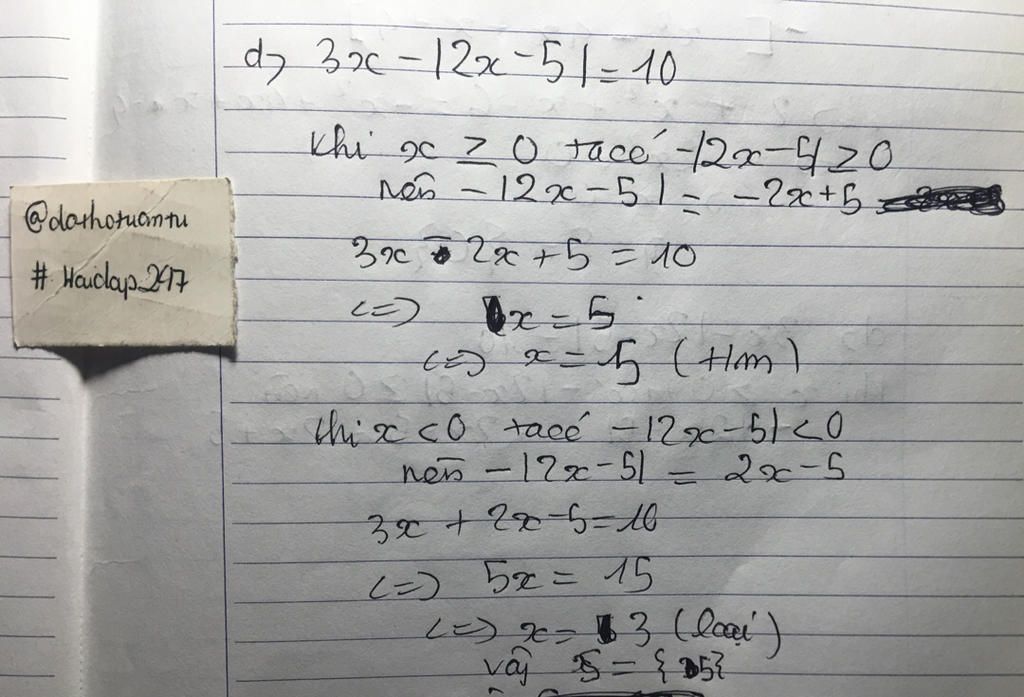 d> 3x - |2x - 5| = 10
Khi x ≥ 0 ta có -|2x - 5| ≥ 0
nên -|2x - 5| = -2x + 5
@dathotuantu
# Hoidap_247
3x - 2x + 5 = 10
<=> x = 5
<=> x = 5 (t/m)
khi x < 0 ta có -|2x - 5| < 0
nên -|2x - 5| = 2x - 5
3x + 2x - 5 = 10
<=> 5x = 15
<=> x = 3 (loại)
Vậy S = {5}